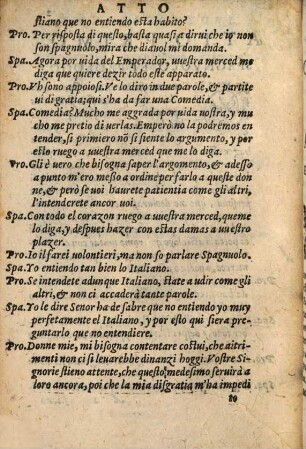 ATTO
stiano que no entiendo esta habito?
Pro. Per risposta di questo, basta quasi a dirui che io non
son spagnuolo, mira che diauol mi domanda.
Spa. Agora por uida del Emperador, uuestra merced me
diga que quiere dezir todo este apparato.
Pro. Vh sono appoiosi. Ve lo diro in due parole, & partite
ui di gratia; qui s'ha da far una Comedia.
Spa. Comedia? Mucho me aggrada por uida nostra, y mu
cho me pretio di uerlas. Emperò no la podremos en
tender, si primiero nō si sente lo argumento, y por
esto ruego a uuestra merced que me lo diga.
Pro. Gli è uero che bisogna saper l'argomento, & adesso
a punto m'ero messo a ordine per farlo a queste don
ne, & però se uoi haurete patientia come gli altri,
l'intenderete ancor uoi.
Spa. Con todo el corazon ruego a uuestra merced, que me
lo diga, y despues hazer con estas damas a uuestro
plazer.
Pro. Io il farei uolontieri, ma non so parlare Spagnuolo.
Spa. Yo entiendo tan bien lo Italiano.
Pro. Se intendete adunque Italiano, state a udir come gli
altri, & non ci accaderà tante parole.
Spa. Yo le dire Senor ha de sabre que no entiendo yo muy
perfettamente el Italiano, y por esto qui siera pre=
guntarlo que no entendiere.
Pro. Donne mie, mi bisogna contentare costui, che altri=
menti non ci si leuarebbe dinanzi hoggi. Vostre Si
gnorie stieno attente, che questo medesimo seruirà a
loro ancora, poi che la mia disgratia m'ha impedi
to